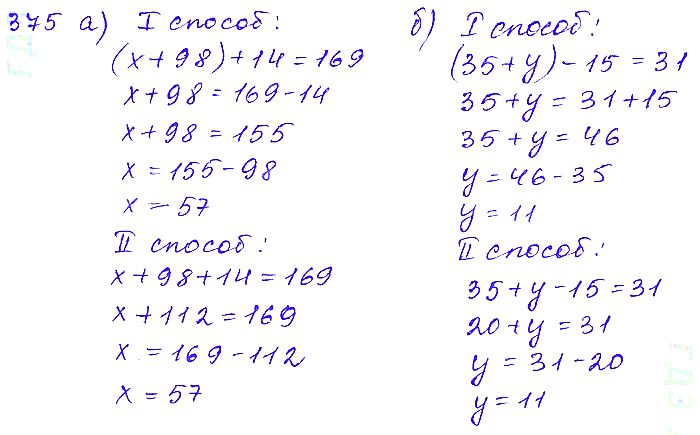 375 а) I способ:
(x+98)+14=169
x+98=169-14
x+98=155
x=155-98
x=57
II способ:
x+98+14=169
x+112=169
x=169-112
x=57
б) I способ:
(35+y)-15=31
35+y=31+15
35+y=46
y=46-35
y=11
II способ:
35+y-15=31
20+y=31
y=31-20
y=11